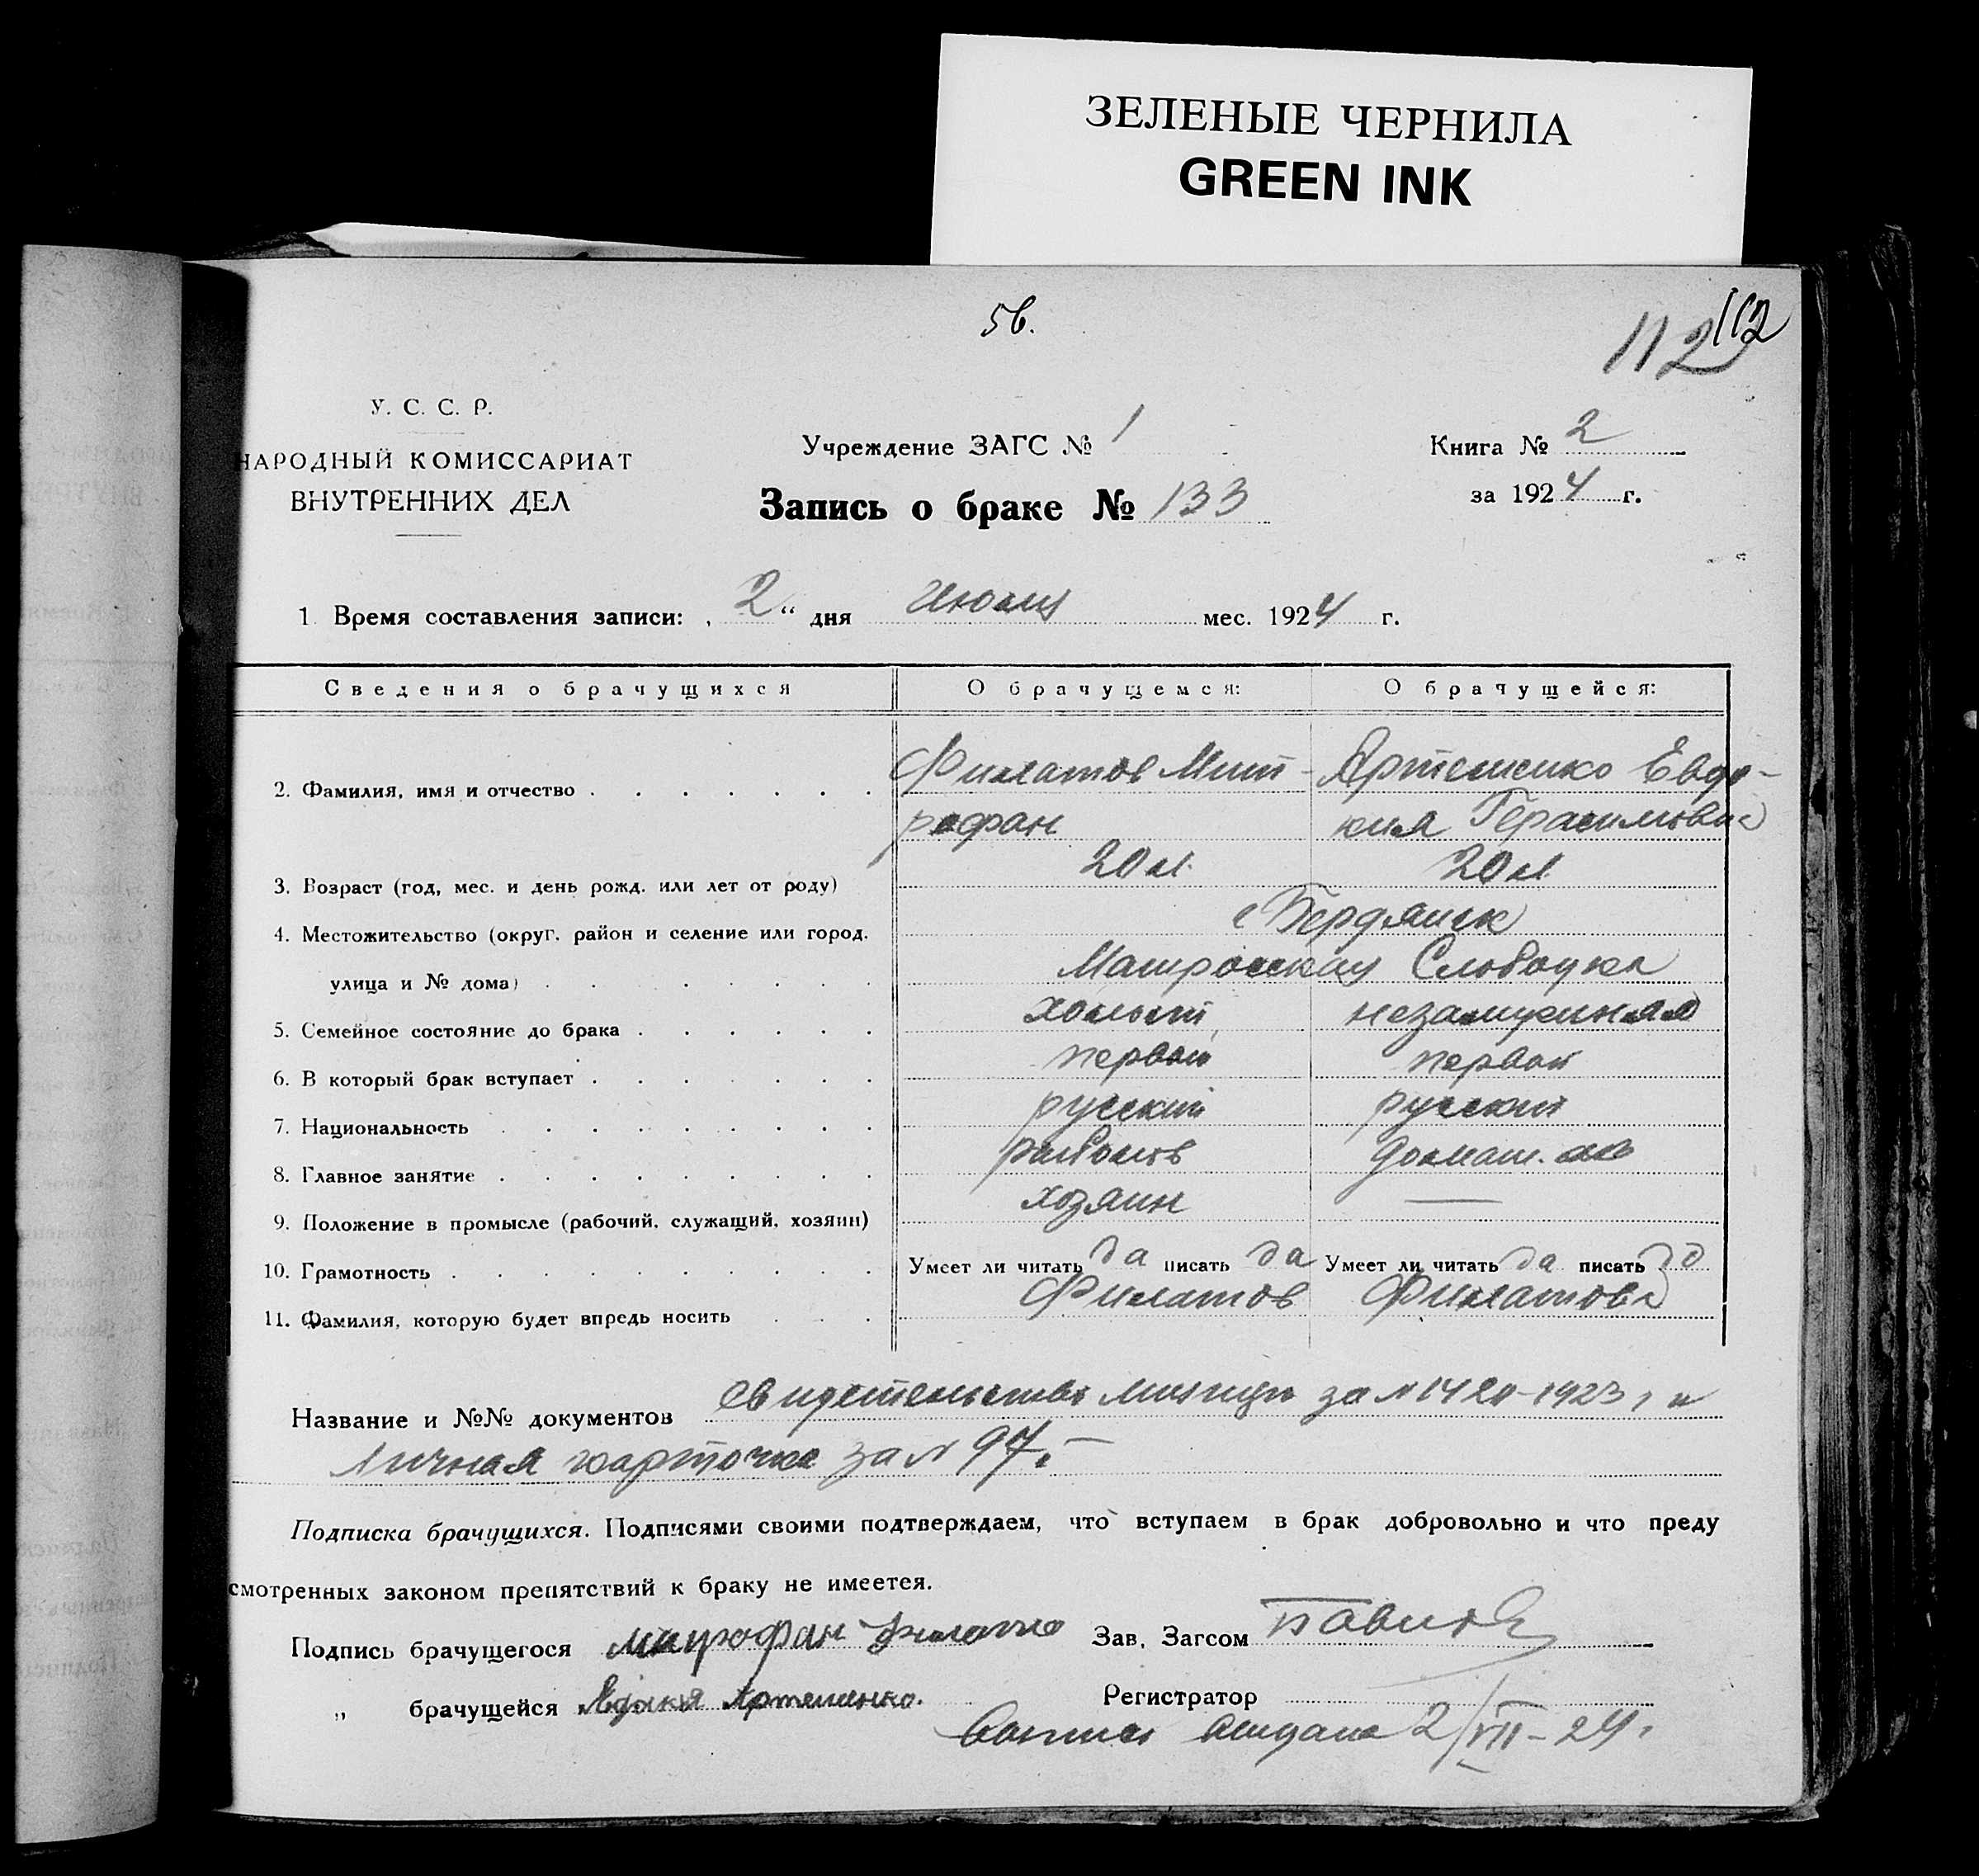 ЗЕЛЕНЫЕ ЧЕРНИЛА
GREEN INK
56.
112 112
У. С. С. Р.
НАРОДНЫЙ КОМИССАРИАТ
ВНУТРЕННИХ ДЕЛ
Учреждение ЗАГС № 1
Книга № 2
за 1924 г.
Запись о браке № 133
1. Время составления записи: „ 2 “ дня Июля мес. 1924 г.
Сведения о брачущихся О брачущемся: О брачущейся:
2. Фамилия, имя и отчество Филатов Мит- Артеменко Евдо-
рофан кия Герасимовна
3. Возраст (год, мес. и день рожд. или лет от роду) 20 л. 20 л
4. Местожительство (округ, район и селение или город, г Бердянск
улица и № дома) Матросская Слободка
5. Семейное состояние до брака холост незамужняя
6. В который брак вступает первый первый
7. Национальность русский русский
8. Главное занятие домаш.
9. Положение в промысле (рабочий, служащий, хозяин) хозяин —
10. Грамотность Умеет ли читать да писать да Умеет ли читать да писать да
11. Фамилия, которую будет впредь носить Филатов Филатова
Название и №№ документов свидетельство милиции за № 1923 г и
Личная карточка за № 97. –
Подписка брачущихся. Подписями своими подтверждаем, что вступаем в брак добровольно и что преду
смотренных законом препятствий к браку не имеется.
Подпись брачущегося Митрофан Филатов Зав. Загсом
„ брачущейся Артеменко. Регистратор
выдана 2/VII – 24 г.